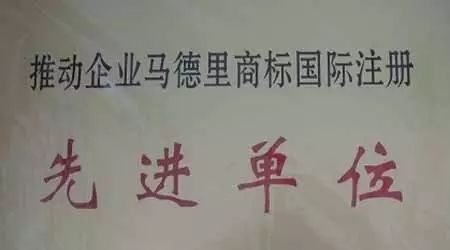 推动企业马德里商标国际注册
先进单位